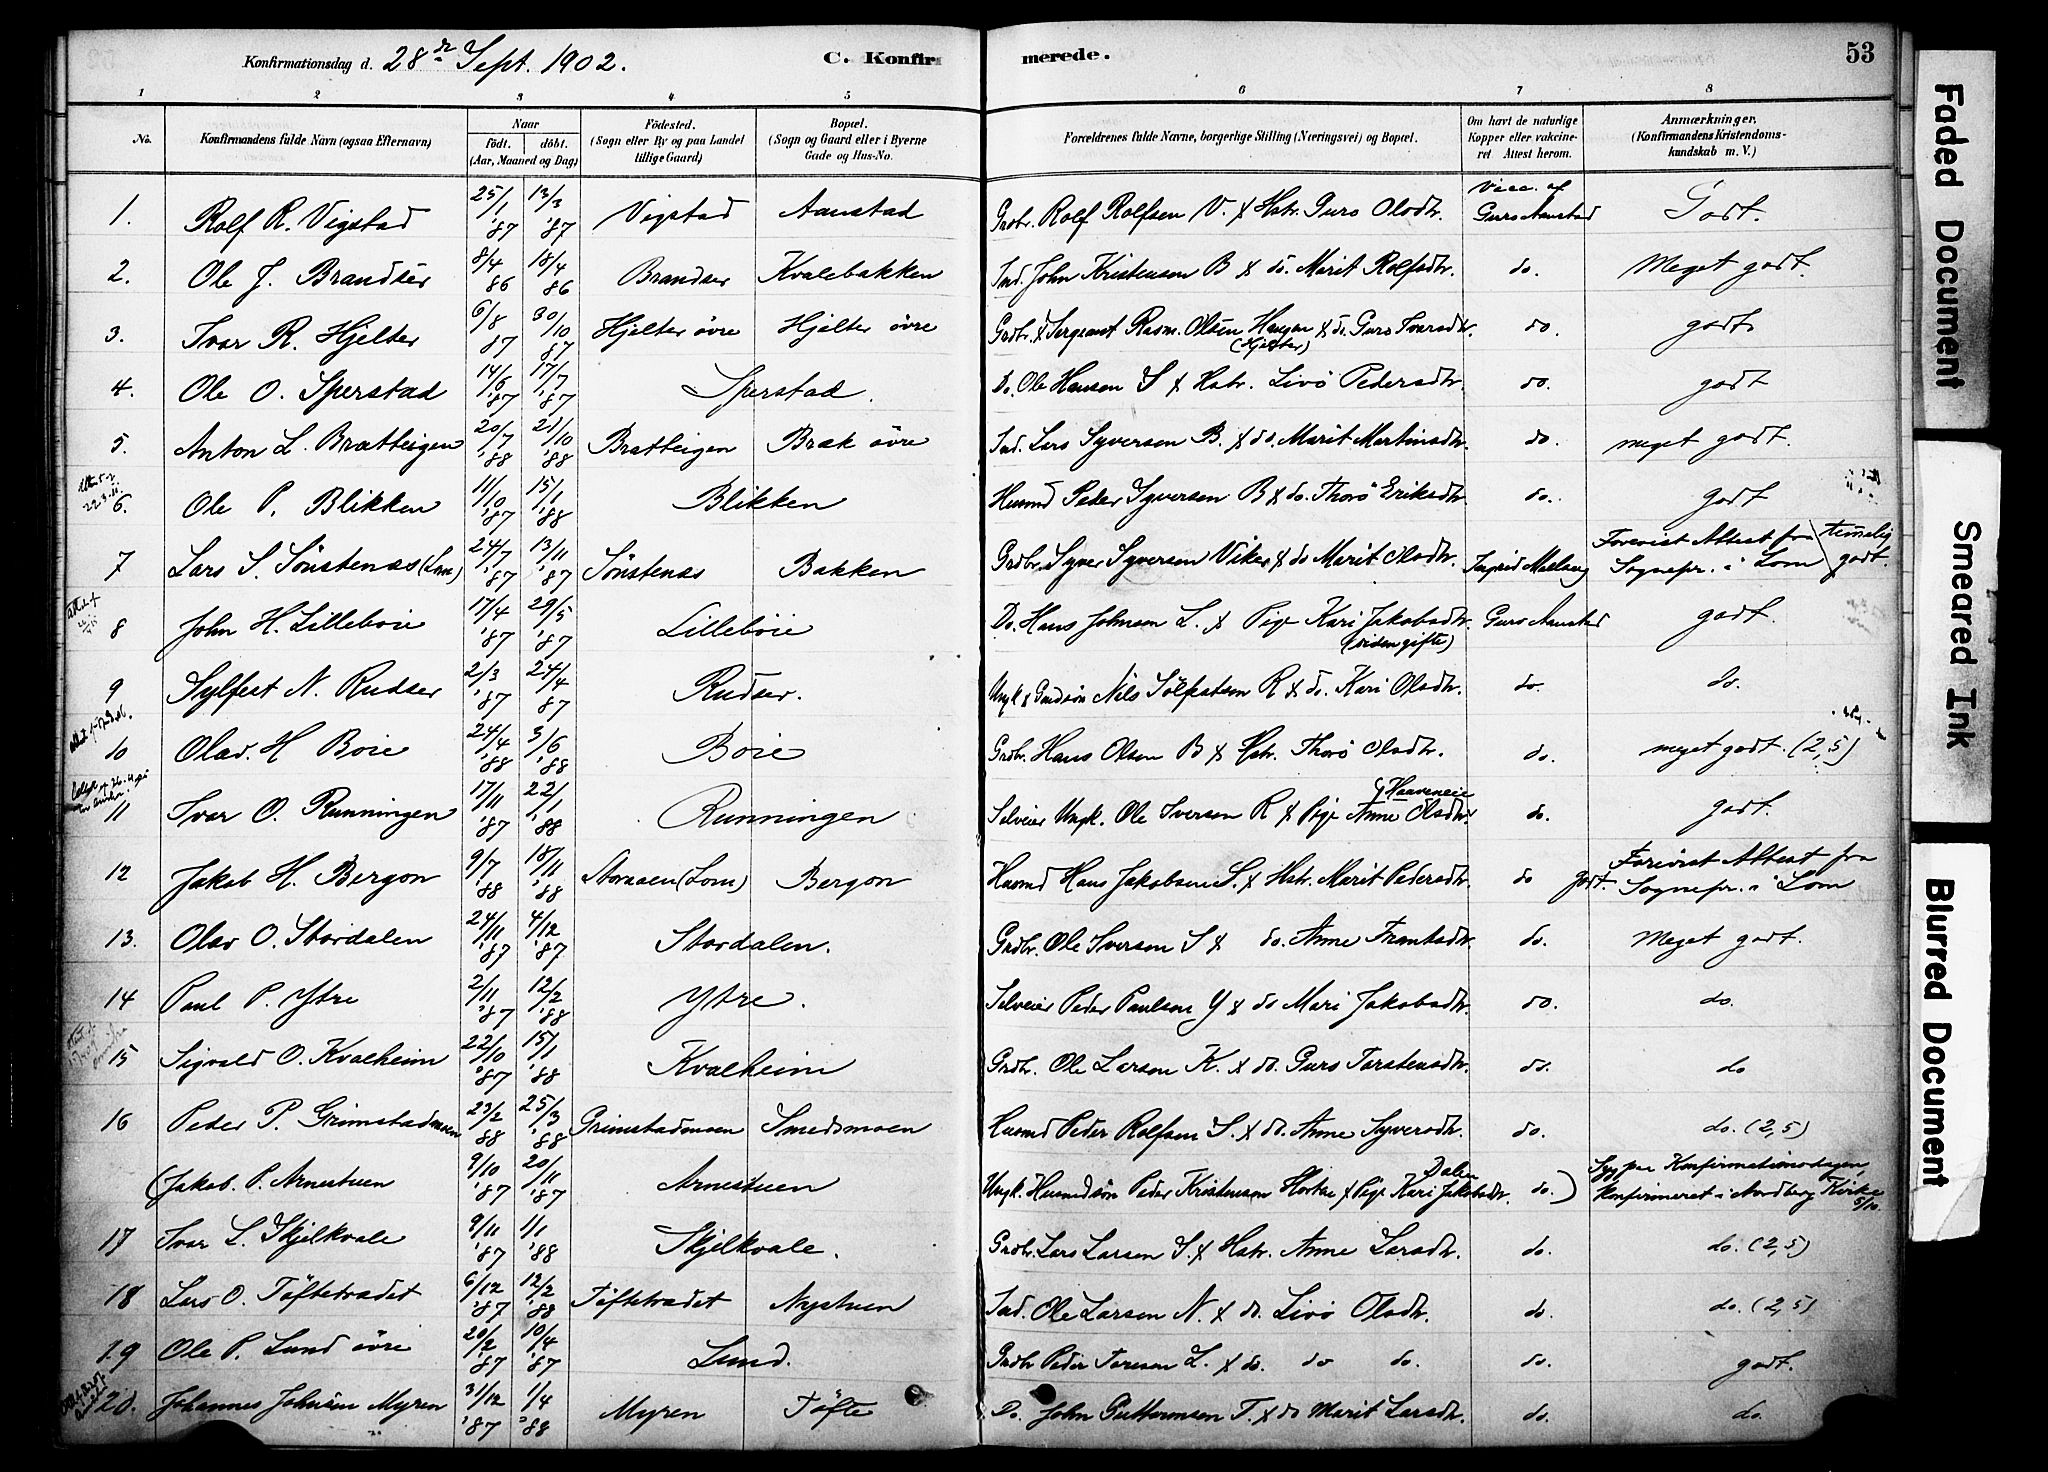 Konfirmationsdag d. 28de Sept. 1902. C. Konfirmerede. 53
1 2 3 4 5 6 7 8
No. Konfirmandens fulde Navn (ogsaa Efternavn) Naar födt. döbt. (Aar, Maaned og Dag) Födested. (Sogn eller By og paa Landet tillige Gaard) Bopæl. (Sogn og Gaard eller i Byerne Gade og Hus-No. Forældrenes fulde Navne, borgerlige Stilling (Næringsvei) og Bopæl. Om havt de naturlige Kopper eller vakcineret Attest herom. Anmærkninger. (Konfirmandens Kristendomskundskab m. V.)
1. Rolf R. Vigstad 25/1 '87 13/3 '87 Vigstad Aanstad Grdbr. Rolf Rolfsen V. & Hstr. Guro Olsdtr. Vacc. af Guro Aanstad Godt.
2. Ole J. Brandsér 8/4 86 18/4 86 Brandser Kvalebakken Ind. John Kristensen B & do. Marit Rolfsdtr. do. Meget godt.
3. Ivar R. Hjelter 6/8 87 30/10 87 Hjelter övre Hjelter övre Grdbr. & Sergeant Rasm. Olsen Haugen (Hjelter) & do. Guro Ivarsdtr. do. godt
4. Ole O. Sperstad 14/6 '87 17/7 '87 Sperstad. Do. Ole Hansen S & Hstr. Livö Pedersdtr. do. godt
5. Anton L. Bratteigen 20/7 '88 21/10 '88 Bratteigen Bræk övre Ind. Lars Syversen B. & do. Marit Martinsdtr. do. meget godt.
6. Ole P. Blikken 11/10 '87 15/1 '88 Blikken Husmd Peder Syversen B & do. Thorö Eriksdtr. do. godt
7 Lars S. Sönstenæs (Lom) 24/7 '87 13/11 '87 Sönstenæs Bakken Grdbr. Syver Syversen Viker & do Marit Olsdtr. Ingrid Forevist Attest fra Sognepr. i Lom temelig godt.
8 John H. Lilleböie 17/4 '87 29/5 '87 Lilleböie Do. Hans Johnsen L. & Pige Kari Jakobsdtr. (siden gifte) Guro Aanstad godt.
9 Sylfest N. Rudser 2/3 '87 24/4 87 Rudser. Ungk. & Grdsön Nils Sölfestsen R & do. Kari Olsdtr. do. do.
10 Olav H Böie 24/4 '88 3/6 '88 Böie Grdbr. Hans Olsen B & Hstr. Thorö Olsdtr. do. meget godt. (2,5)
11 Ivar O. Runningen 17/11 '87 22/1 '88 Runningen Selveier Ungk. Ole Iversen R & Pige Anne Olsdtr. do. godt.
12 Jakob H. Bergom 9/7 '88 18/11 '88 Stormoen (Lom) Bergom Husmd Hans Jakobsen S. & Hstr. Marit Pedersdtr. do godt. Forevist Attest fra Sognepr. i Lom
13. Olav O. Stordalen 24/11 '87 4/12 '87 Stordalen. Grdbr. Ole Iversen S & do. Anne Frantsdtr. do. Meget godt.
14 Paul P. Ytre 2/11 '87 12/2 '88 Ytre. Selveier Peder Paulsen Y & do Mari Jakobsdtr. do. do.
15 Sigvald O. Kvalheim 22/10 '87 15/1 '88 Kvalheim Grdbr. Ole Larsen K. & do. Guro Torstensdtr. do. do
16 Peder P. Grimstadmoen 23/2 88 25/3 '88 Grimstadmoen Smedsmoen Husmd Peder Rolfsen S. & do. Anne Syversdtr. do. do. (2,5)
(Jakob. P. Arnestuen 9/10 '87 20/11 '87 Arnestuen Ungk. Husmdsön Peder Kristensen & Pige Kari Jakobsdtr. Dalen do.) Syg paa Konfirmationsdagen, konfirmeret i Nordberg Kirke 5/10.
17 Ivar L. Skjelkvale 9/11 '87 1/1 '88 Skjelkvale. Grdbr. Lars Larsen S. & Hstr. Anne Larsdtr. do. do. (2,5)
18 Lars O. Töftetrædet 6/12 '87 12/2 '88 Töftetrædet Nystuen Ind. Ole Larsen N. & do. Livö Olsdtr. do do. (2,5)
19 Ole P. Lund övre 20/2 '87 10/4 '87 Lund. Grdbr Peder Toresen L. & do. do do. do. godt.
20. Johannes Johnsen Myren 31/12 '87 1/4 '88 Myren Töfte Do. John Guttormsen T. & do Marit Larsdtr. do. do.
Faded Document
Smeared Ink
Blurred Document